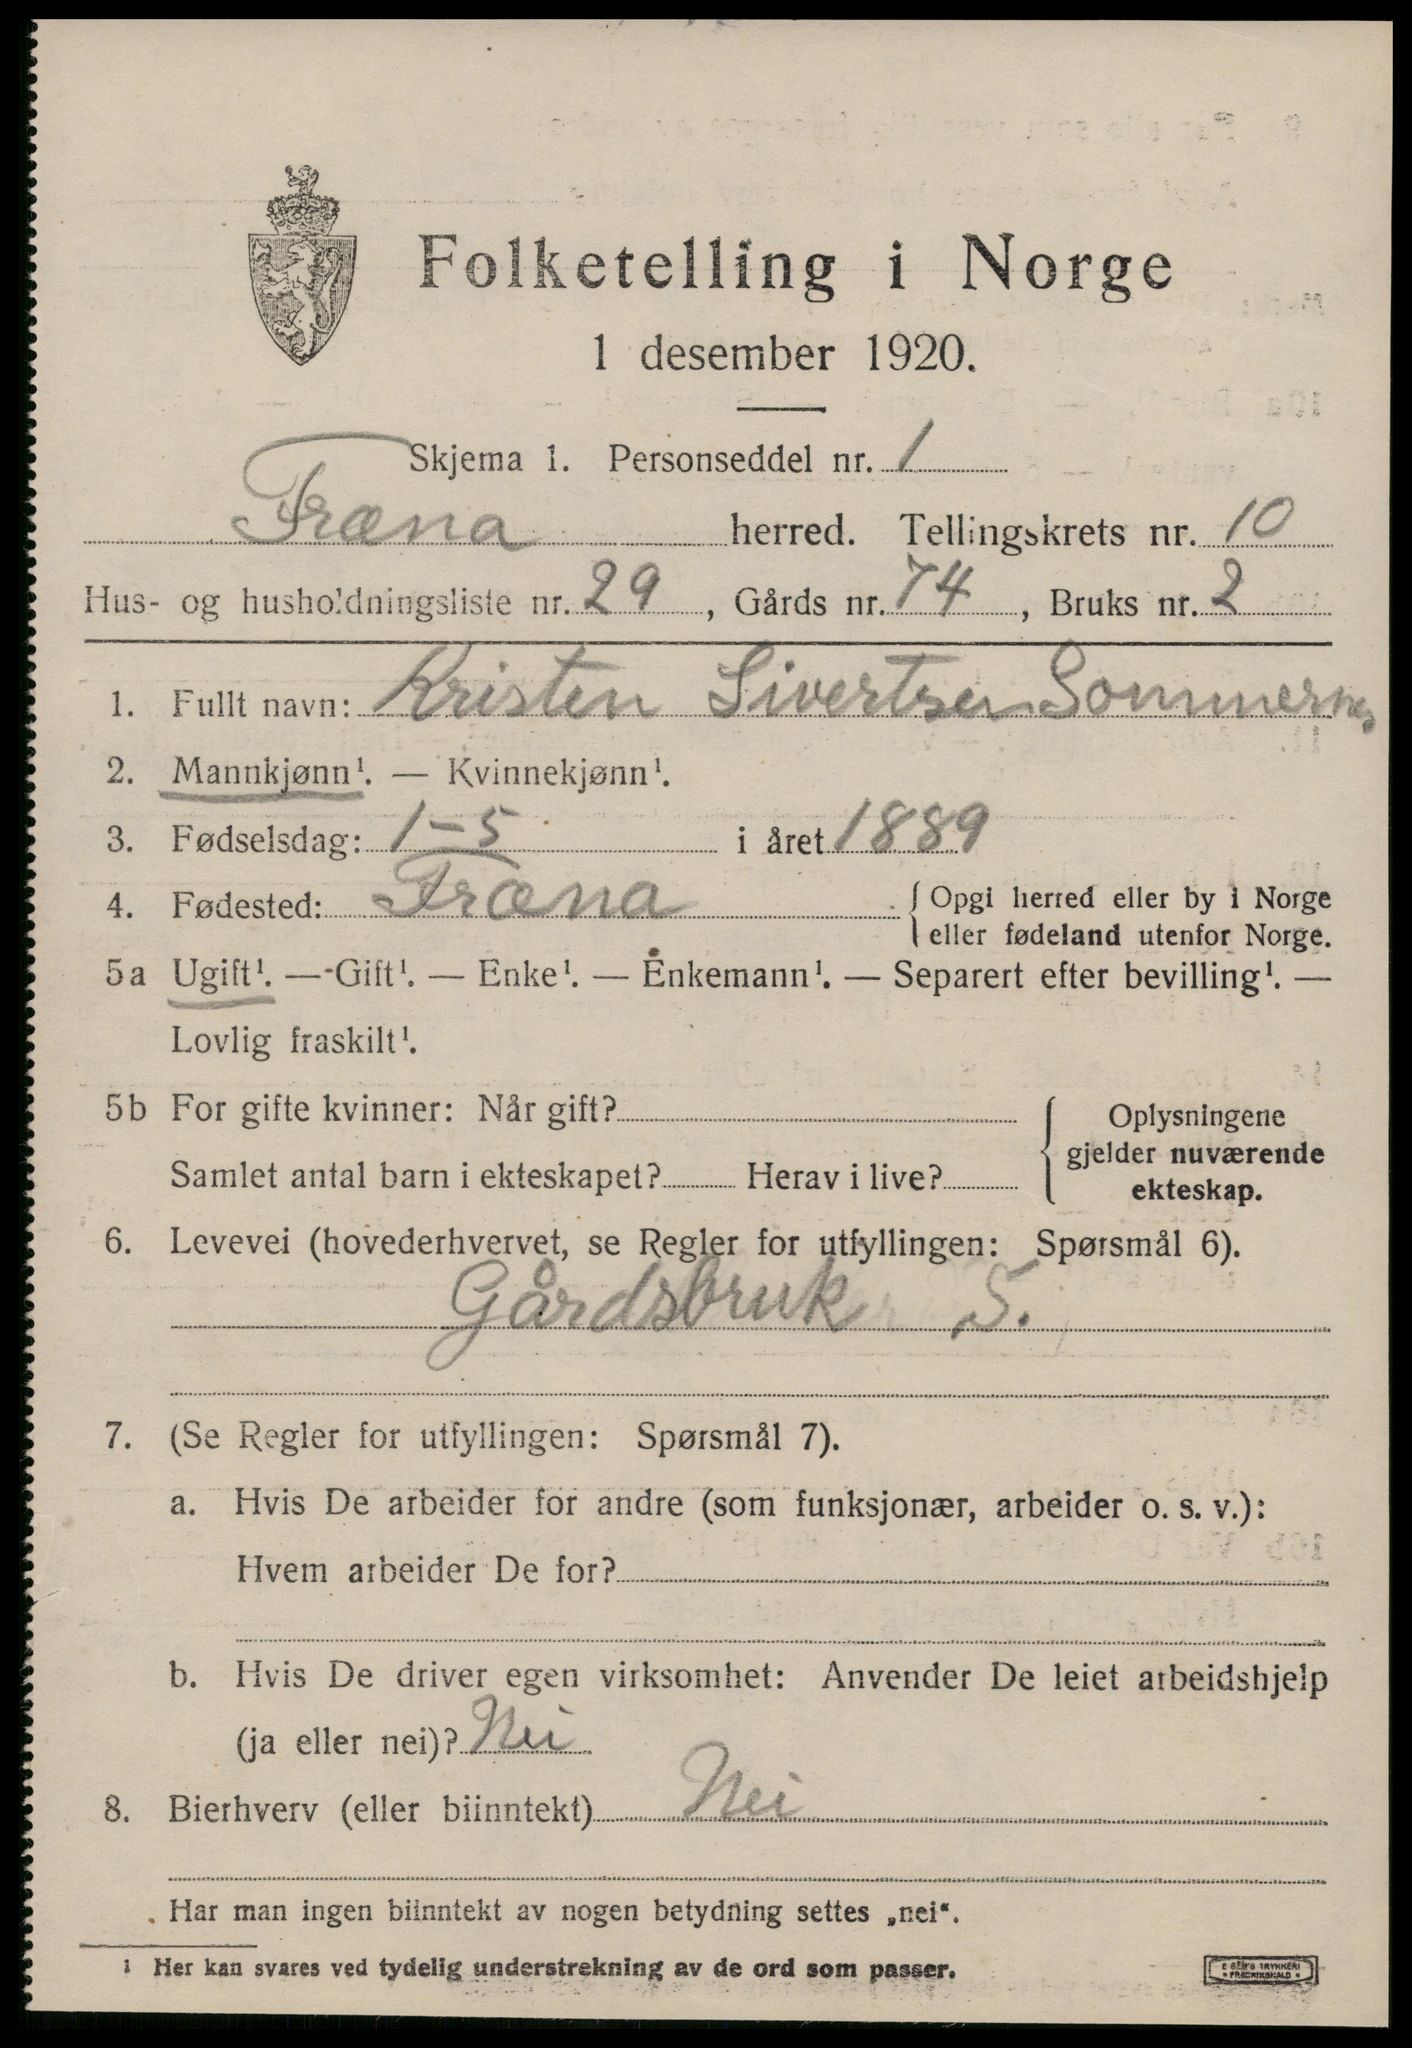 Folketelling i Norge
1 desember 1920.
Skjema 1. Personseddel nr. 1
Fræna herred. Tellingskrets nr. 10
Hus- og husholdningsliste nr. 29, Gårds nr. 74, Bruks nr. 2
1. Fullt navn: Kristen Sivertsen Sommernes
2. Mannkjønn¹. — Kvinnekjønn¹.
3. Fødselsdag: 1-5 i året 1889
4. Fødested: Fræna { Opgi herred eller by i Norge
eller fødeland utenfor Norge.
5a Ugift¹. — Gift¹. — Enke¹. — Enkemann¹. — Separert efter bevilling¹. —
Lovlig fraskilt¹.
5b For gifte kvinner: Når gift? { Oplysningene
gjelder nuværende
Samlet antal barn i ekteskapet? Herav i live?
ekteskap.
6. Levevei (hovederhvervet, se Regler for utfyllingen: Spørsmål 6).
Gårdsbruker S.
7. (Se Regler for utfyllingen: Spørsmål 7).
a. Hvis De arbeider for andre (som funksjonær, arbeider o. s. v.):
Hvem arbeider De for?
b. Hvis De driver egen virksomhet: Anvender De leiet arbeidshjelp
(ja eller nei)? Nei
8. Bierhverv (eller biinntekt) Nei
Har man ingen biinntekt av nogen betydning settes „nei“.
¹ Her kan svares ved tydelig understrekning av de ord som passer.